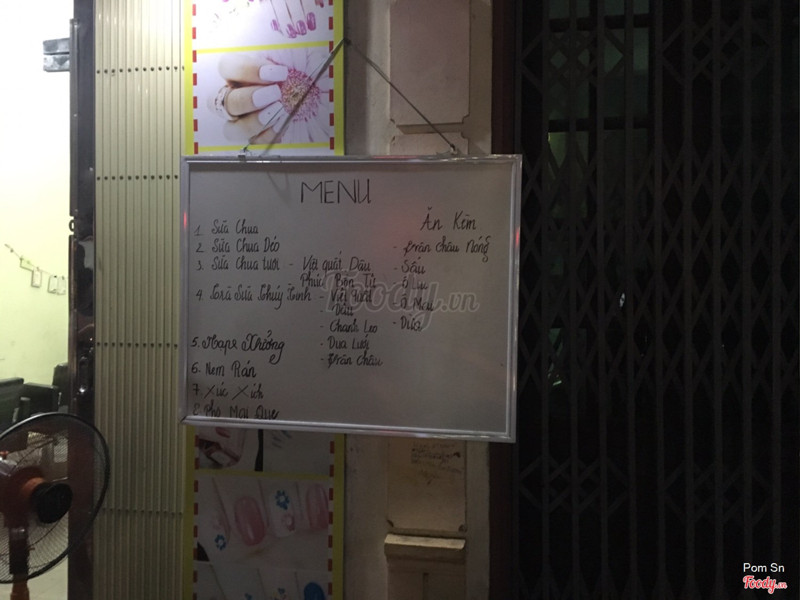 MENU
1. Sữa Chua
2. Sữa Chua Dẻo
3. Sữa Chua tươi - Việt quất Dâu
Phúc Bồn Tử
4. Sữa Thủy Tinh - Việt quất
Dâu
- Chanh Leo
- Dưa Lưới
- Trân Châu
5. Nưởng
6. Nem Rán
7. Xúc Xích
8. Phô Mai Que
Ăn Kèm
- Trân châu Nóng
- Sấu
- Ô Mai
- Dứa
Foody.vn
Pom Sn
Foody.vn